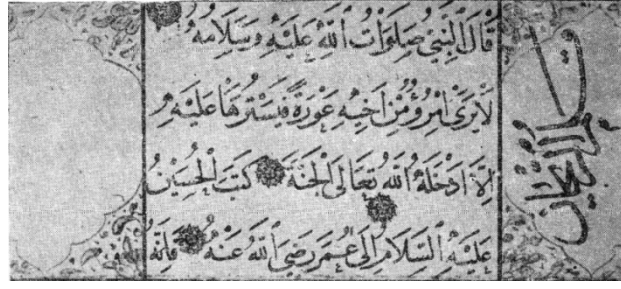 قَالَ النَّبِيُّ صَلَوَاتُ اللّٰهِ عَلَيْهِ وَسَلَامُهُ
لَا يَرَىٰ امْرُؤٌ مِنْ أَخِيهِ عَوْرَةً فَيَسْتُرُهَا عَلَيْهِ
إِلَّا أَدْخَلَهُ اللّٰهُ تَعَالَى الْجَنَّةَ كَتَبَ الْحُسَيْنُ
عَلَيْهِ السَّلَامُ إِلَىٰ عُمَرَ رَضِيَ اللّٰهُ عَنْهُ